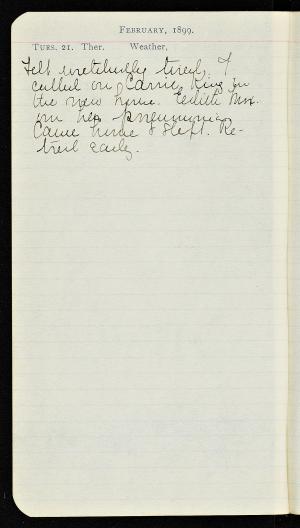 FEBRUARY, 1899.
TUES. 21. Ther. Weather,
Felt wretchedly tired. I
called on Carrie King in
the new home. Edith
has pneumonia.
Came home & slept. Re-
tired early.